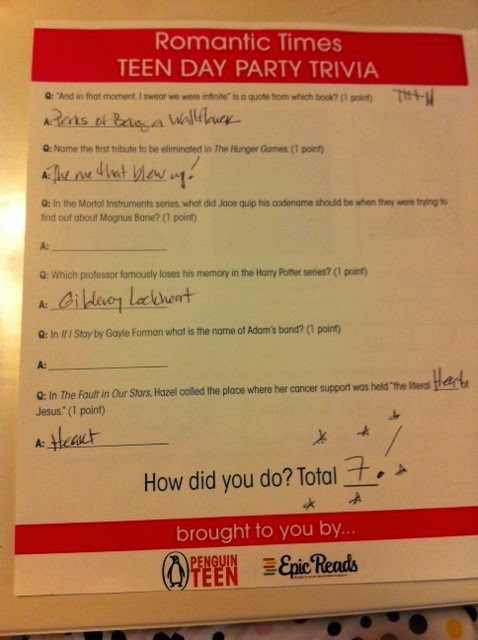 Romantic Times
TEEN DAY PARTY TRIVIA
Q: "And in that moment, I swear we were infinite" is a quote from which book? (1 point)
A: Perks of Being a Wallflower
Q: Name the first tribute to be eliminated in The Hunger Games. (1 point)
A: The one that blew up!
Q: In the Mortal Instruments series, what did Jace quip his codename should be when they were trying to
find out about Magnus Bane? (1 point)
A:
Q: Which professor famously loses his memory in the Harry Potter series? (1 point)
A: Gilderoy Lockheart
Q: In If I Stay by Gayle Forman what is the name of Adam's band? (1 point)
A:
Q: In The Fault in Our Stars, Hazel called the place where her cancer support was held "the literal Heart of
Jesus." (1 point)
A: Heart
How did you do? Total 7.
brought to you by...
PENGUIN
TEEN
Epic Reads